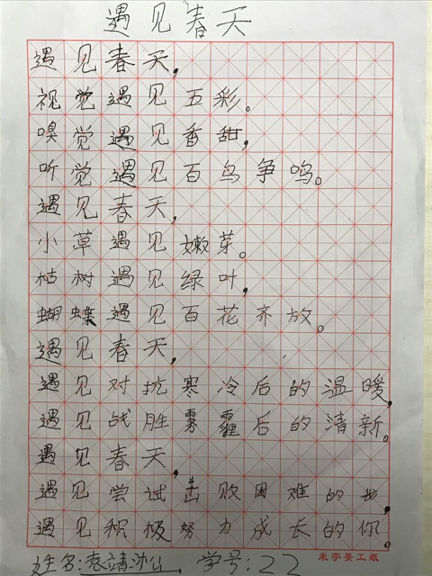 遇见春天
遇见春天,
视觉遇见五彩。
嗅觉遇见香甜,
听觉遇见百鸟争鸣。
遇见春天,
小草遇见嫩芽。
枯树遇见绿叶,
蝴蝶遇见百花齐放。
遇见春天,
遇见对抗寒冷后的温暖,
遇见战胜雾霾后的清新。
遇见春天,
遇见尝试击败困难的我,
遇见积极努力成长的你。
米字姜工纸
姓名:袁靖汕 学号:22